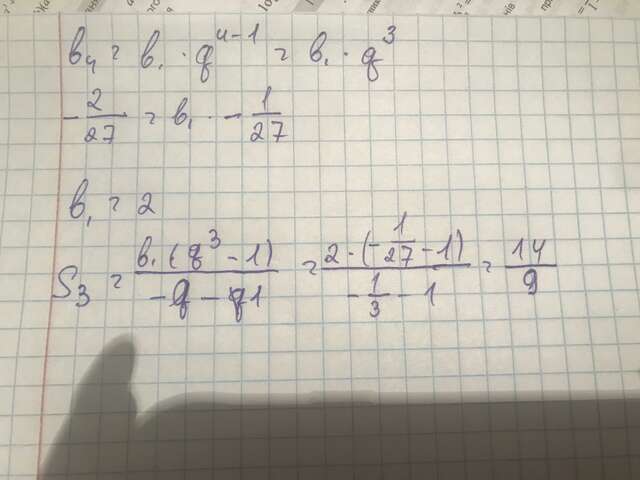 b₄ = b₁ · q⁴⁻¹ = b₁ · q³
-2/27 = b₁ · -1/27
b₁ = 2
S₃ = b₁(q³ - 1)/(-q - q1) = 2 · (-1/27 - 1)/(-1/3 - 1) = 14/9